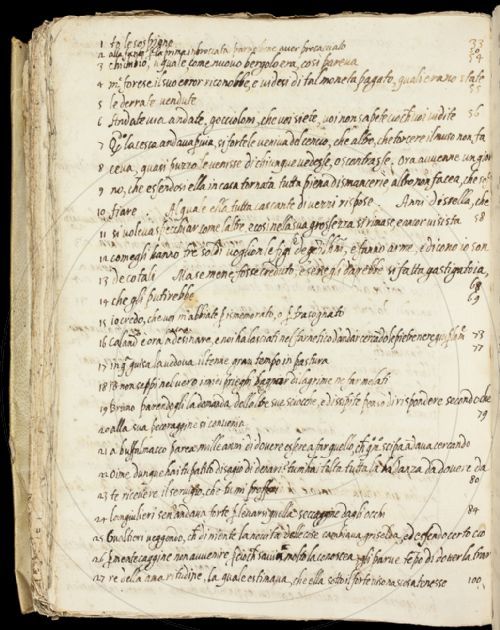 1 to le sospigne 33
2 alla santa la prima imbrocata parendone aver procacciato 50
3 chiunbio, il quale come nuovo bergolo era, così pareva 54
4 m.o forese il suo error riconobbe, e videsi di tal moneta pagato, quali erano state
5 le derrate vendute 55
6 Andate via andate, goccioloni, che voi siete, voi non sapete ciò che voi vi dite 56
7 Quando la cesca andava per via, sì forte le veniva del cencio, che altro, che torcere il muso non fa
8 ceva, quasi puzzo le venisse di chiunque vedesse, o scontrasse. Ora avvenne un gior
9 no, che essendosi ella in casa tornata tutta piena di smancerie altro non facea, che sof
10 fiare. Al quale ella tutta cascante di vezzi rispose. Anzi d'ise ella, che
11 si voleva specchiar come l'altre, e così nella sua grossezza si rimase, e ancor vi si sta 58
12 come egli hanno tre soldi vogliono le fig.e de gentilhuomini, e fanno arme, e dicono io son
13 de cotali. Ma se me ne fosse creduto, e se ne gli darebbe sì fatta gastigatoia, 68
14 che gli putirebbe 69
15 io credo, che voi m'abbiate per ismemorato, o per trasognato
16 Calandrino e ora di desinare, e noi ha lasciati nel farnetico d'andar cercando le pietre nere giù per lo 73
17 in questa guisa la vedova il tenne gran tempo in pastura 77
18 Et non seppi nel vero i miei prieghi bagnar di lagrime ne far melati
19 Bruno parendogli la domanda delle altre sue sciocche, e dissipite pensò di rispondere secondo che 79
20 alla sua pecoraggine si conveniva
21 A buffalmacco parea mille anni di dovere essere a far quello, che questo scipa andava cercando
22 Oime dunque hai tu patito disagio di denari: tu mi hai tolta tutta la baldanza da dovere da
23 te ricevere il servigio, che tu mi profferi 80
24 lungulieri sen'andava forte per levarsi quella seccaggine dagli occhi 84
25 Gualtieri veggendo, che di niente la novità delle cose cambiava griselda, ed essendo certo ciò
26 per mentecaggine non avvenire, perciò che savia molto la conoscea, gli parve tempo di doverla trar
27 re della amaritudine, la quale estimava, che ella sotto il forte viso nascosa tenesse 100